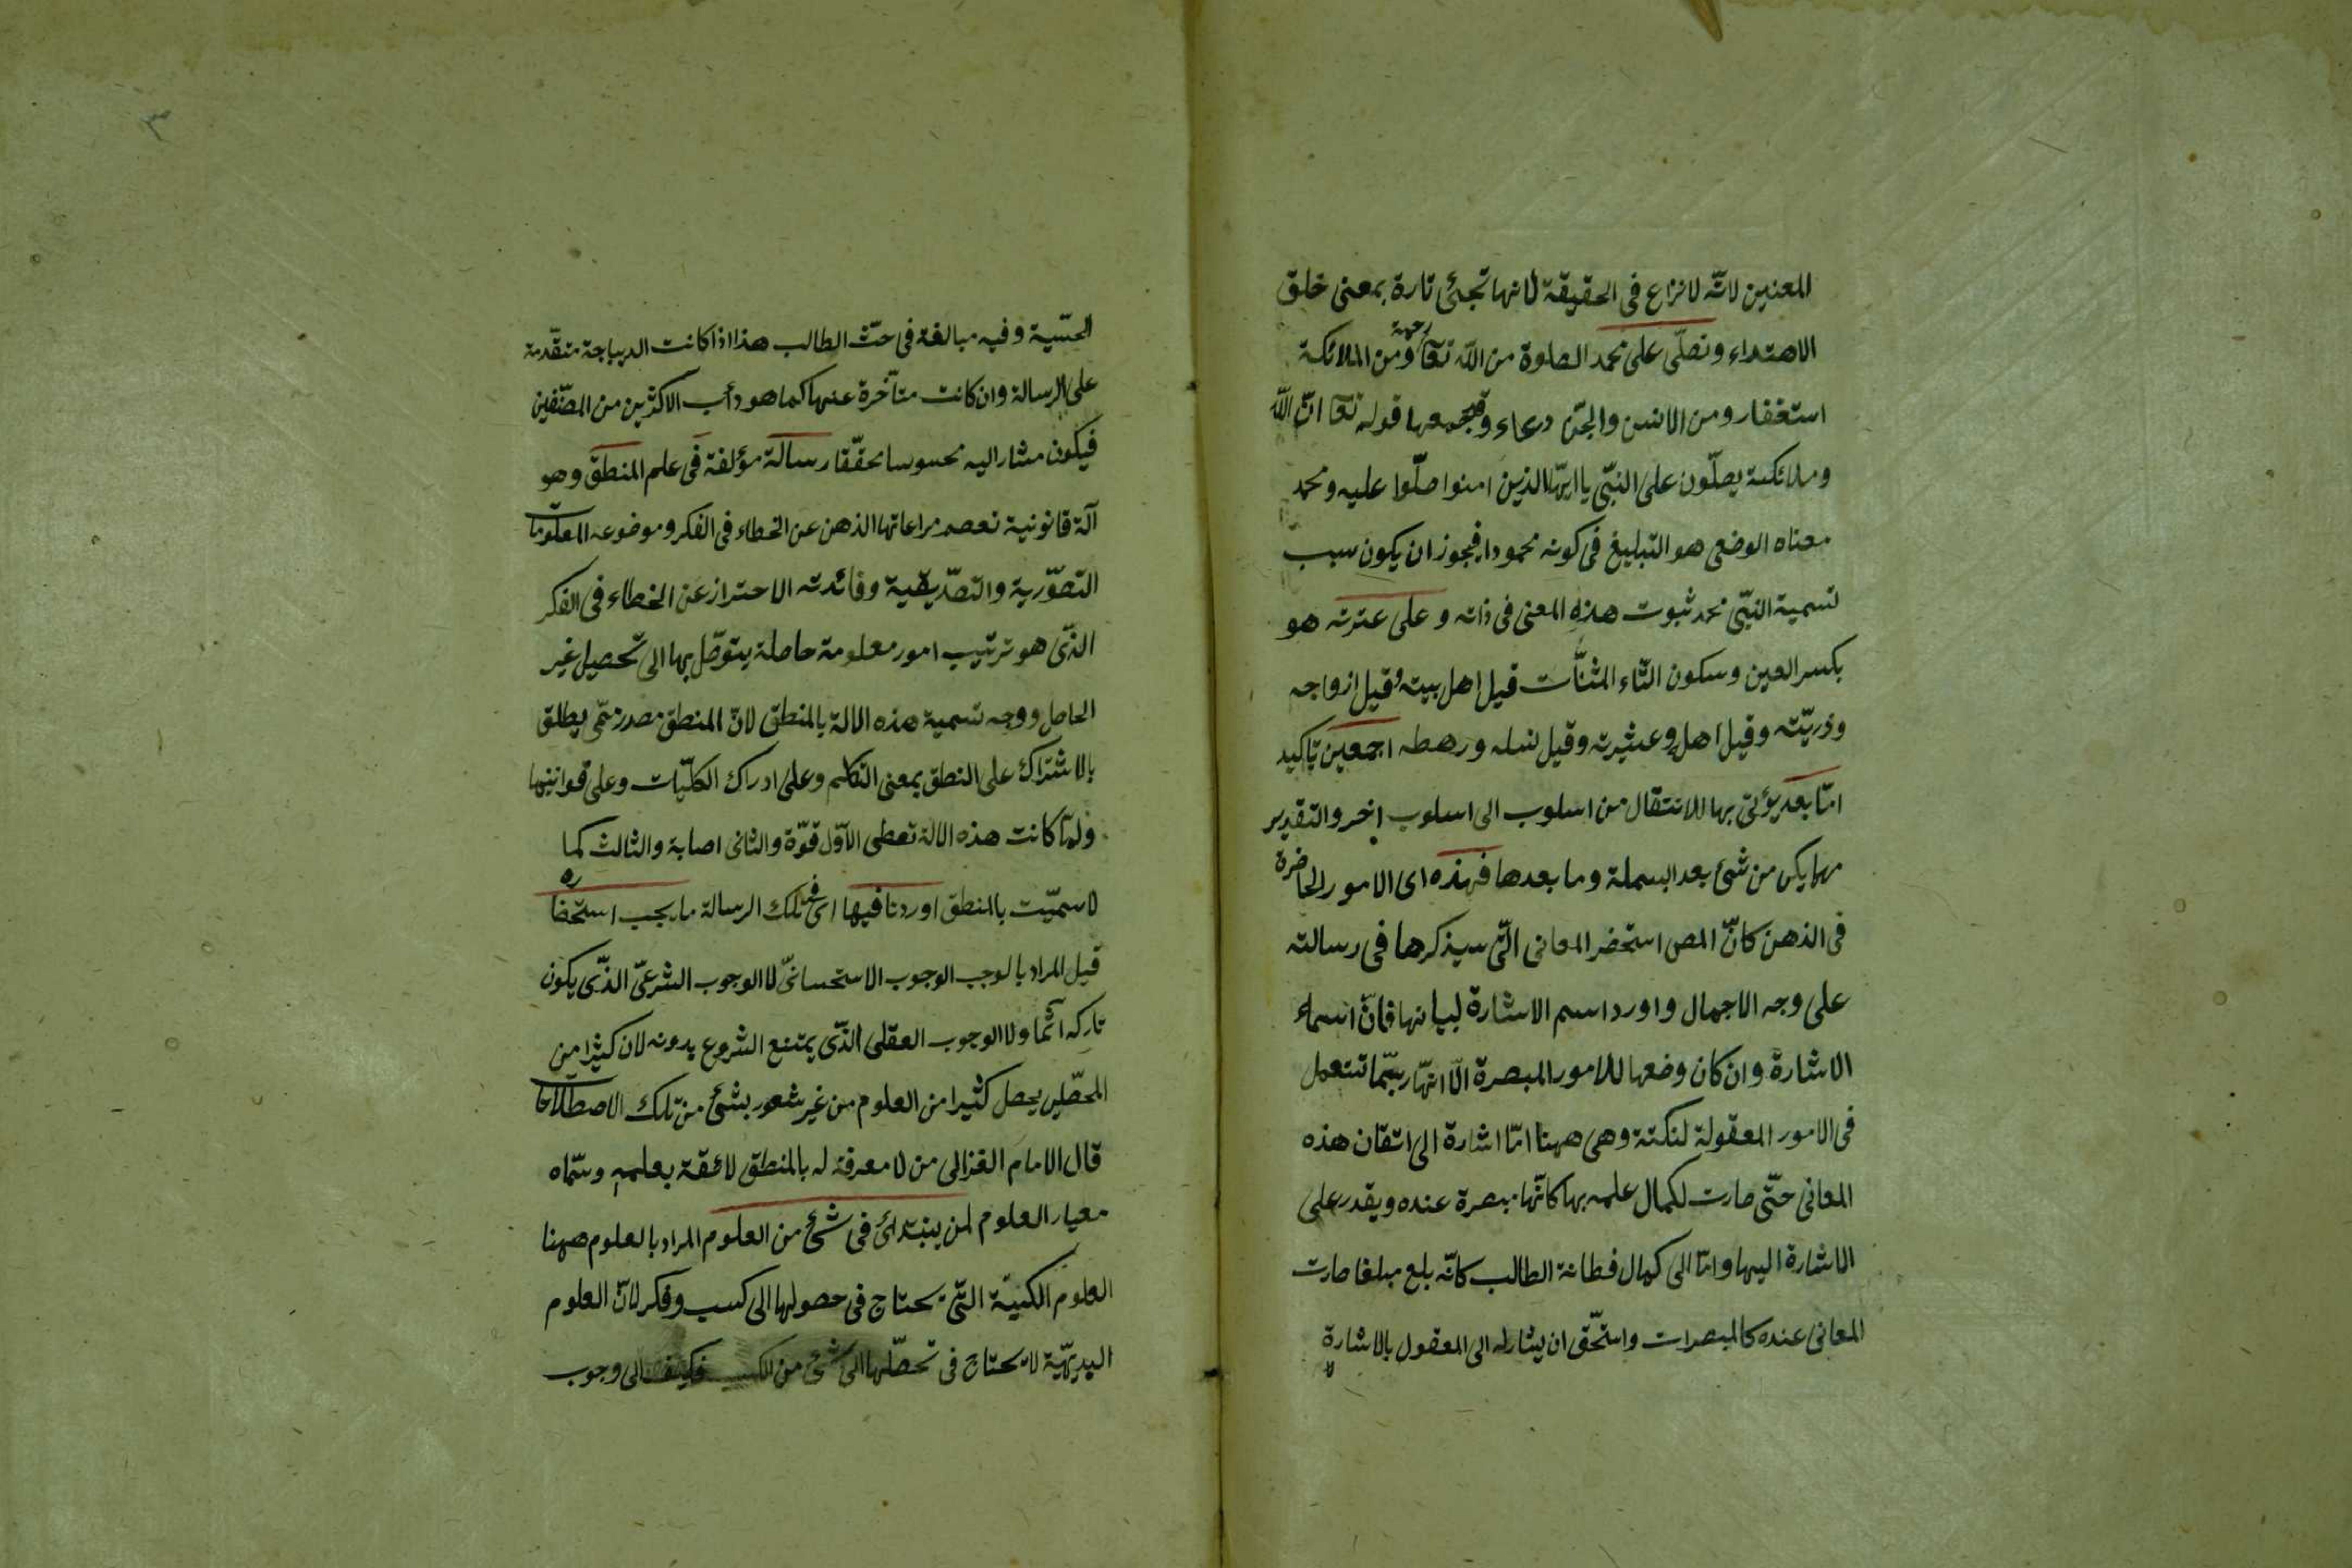 المعنين لانّه لا نزاع فى الحقيقة لانها تجئ تارة بمعنى خلق
الاهتداء ونصلّى على محمد الصلوة من اللّه تعا رحمة ومن الملائكة
استغفار ومن الانس والجنّ دعاء وقيجمعها قوله تعا انّ اللّه
وملائكته يصلّون على النبّى يا ايهّا الذين امنوا صلّوا عليه ومحمد
معناه الوضعى هو التبليغ فى كونه محمودا فيجوز ان يكون سبب
تسمية النبّى محمد ثبوت هذه المعنى فى ذاته وعلى عترته هو
بكسر العين وسكون التّاء المثنّات قيل اهل بيته وقيل ازواجه
وذريّته وقيل اهله وعشيرته وقيل نسله ورهطه اجمعين تاكيد
امّا بعد يؤتى بها للانتقال من اسلوب الى اسلوب اخر والتقدير
مهما يكن من شئ بعد البسملة وما بعدها فهذه اى الامور الحاضرة
فى الذهن كانّ المص استحضر المعانى الّتى سيذكرها فى رسالته
على وجه الاجمال واورد اسم الاشارة لبيانها فانّ اسماء
الاشارة وان كان وضعها للامور المبصرة الّا انهّا ربمّا تستعمل
فى الامور المعقولة لنكتة وهى ههنا امّا اشارة الى اتقان هذه
المعانى حتّى صارت لكمال علمه بها كانّها مبصرة عنده ويقدر على
الاشارة اليها وامّا الى كمال فطانة الطالب كانّه بلغ مبلغا صارت
المعانى عنده كالمبصرات واستحّق ان يشار له الى المعقول بالاشارة
٣
الحسّية وفيه مبالغة فى حثّ الطالب هذا اذا كانت الديباجة متقدّمة
على الرسالة وان كانت متأخّرة عنها كما هو دأب الاكثرين من المصنّفين
فيكون مشار اليه محسوسا محقّقا رسالة مؤلفة فى علم المنطق وهو
آلة قانونية تعصم مراعاتها الذهن عن الخطاء فى الفكر وموضوعه المعلومات
التصوّرية والتصدّيقية وفائدته الاحتراز عن الخطاء فى الفكر
الذّى هو ترتيب امور معلومة حاصلة يتوصّل بها الى تحصيل غير
الحاصل ووجه تسمية هذه الالة بالمنطق لانّ المنطق مصدر ميّمى يطلق
بالاشتراك على النطق بمعنى التكلم وعلى ادراك الكلّيات وعلى قوانينها
ولمّا كانت هذه الالة تعطى الاوّل قوّة والثانى اصابة والثالث كما
لا سميّت بالمنطق اوردنا فيها اى فى تلك الرسالة ما يجب استحضاره
قيل المراد بالوجب الوجوب الاستحسانىّ لا الوجوب الشرعىّ الذّى يكون
تاركه آثما ولا الوجوب العقلى الذّى يمتنع الشروع بدونه لان كثيرا من
المحصّلين يحصل كثيرا من العلوم من غير شعور بشئ من تلك الاصطلاحات
قال الامام الغزالى من لا معرفة له بالمنطق لا ثقة بعلمه وسمّاه
معيار العلوم لمن يبتدائ فى شئ من العلوم المراد بالعلوم ههنا
العلوم الكسبية التّى يحتاج فى حصولها الى كسب وفكر لانّ العلوم
البديهّية لا يحتاج فى تحصّلها الى شئ من الكسب فكيف الى وجوب